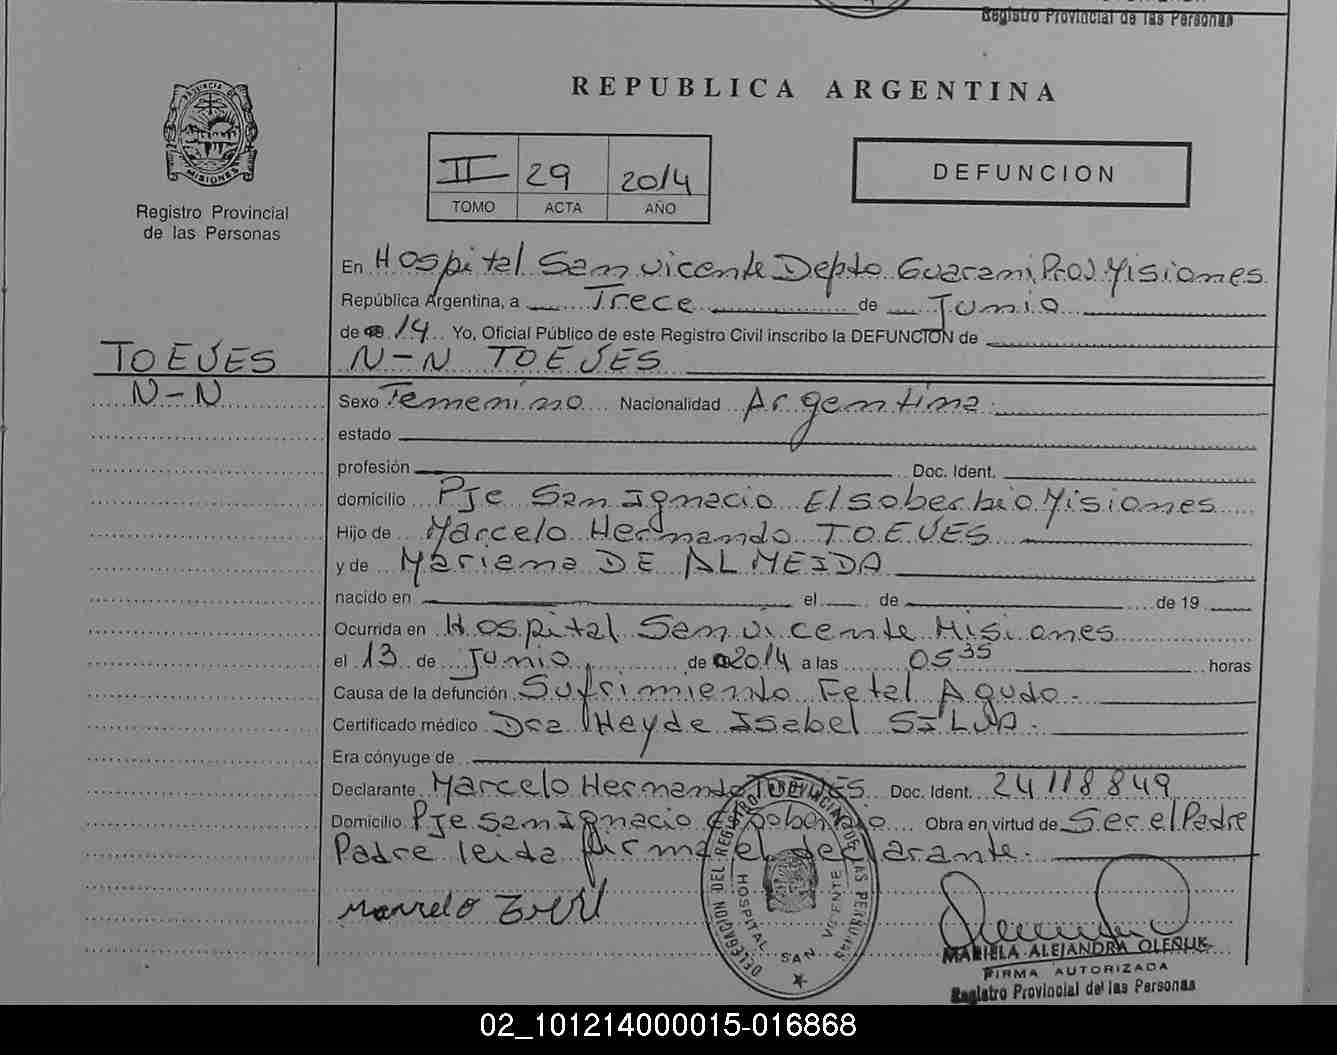 Registro Provincial de las Personas
REPUBLICA ARGENTINA
PROVINCIA DE
MISIONES
Registro Provincial
de las Personas
II 29 2014
TOMO ACTA AÑO
DEFUNCION
En Hospital San vicente Depto Guarani Prov Misiones
República Argentina, a Trece de Junio
de 14 Yo, Oficial Público de este Registro Civil inscribo la DEFUNCION de
TOEVES
N-N TOEVES
N-N
Sexo Femenino Nacionalidad Argentina
estado
profesión Doc. Ident.
domicilio Pje San Ignacio El soberbio Misiones
Hijo de Marcelo Hernando TOEVES
y de Mariana DE ALMEIDA
nacido en el de de 19
Ocurrida en Hospital San vicente Misiones
el 13 de Junio de 2014 a las 05 35 horas
Causa de la defunción Sufrimiento Fetal Agudo.
Certificado médico Dra Heyde Isabel SILVA.
Era cónyuge de
Declarante Marcelo Hernando TOEVES Doc. Ident. 24118849
Domicilio Pje San Ignacio El soberbio Obra en virtud de Ser el Padre
Padre leida firma el declarante.
Marcelo
DELEGACION DEL REGISTRO PROVINCIAL DE LAS PERSONAS
HOSPITAL SAN VICENTE
MARIELA ALEJANDRA OLENUK
FIRMA AUTORIZADA
Registro Provincial de las Personas
02_101214000015-016868